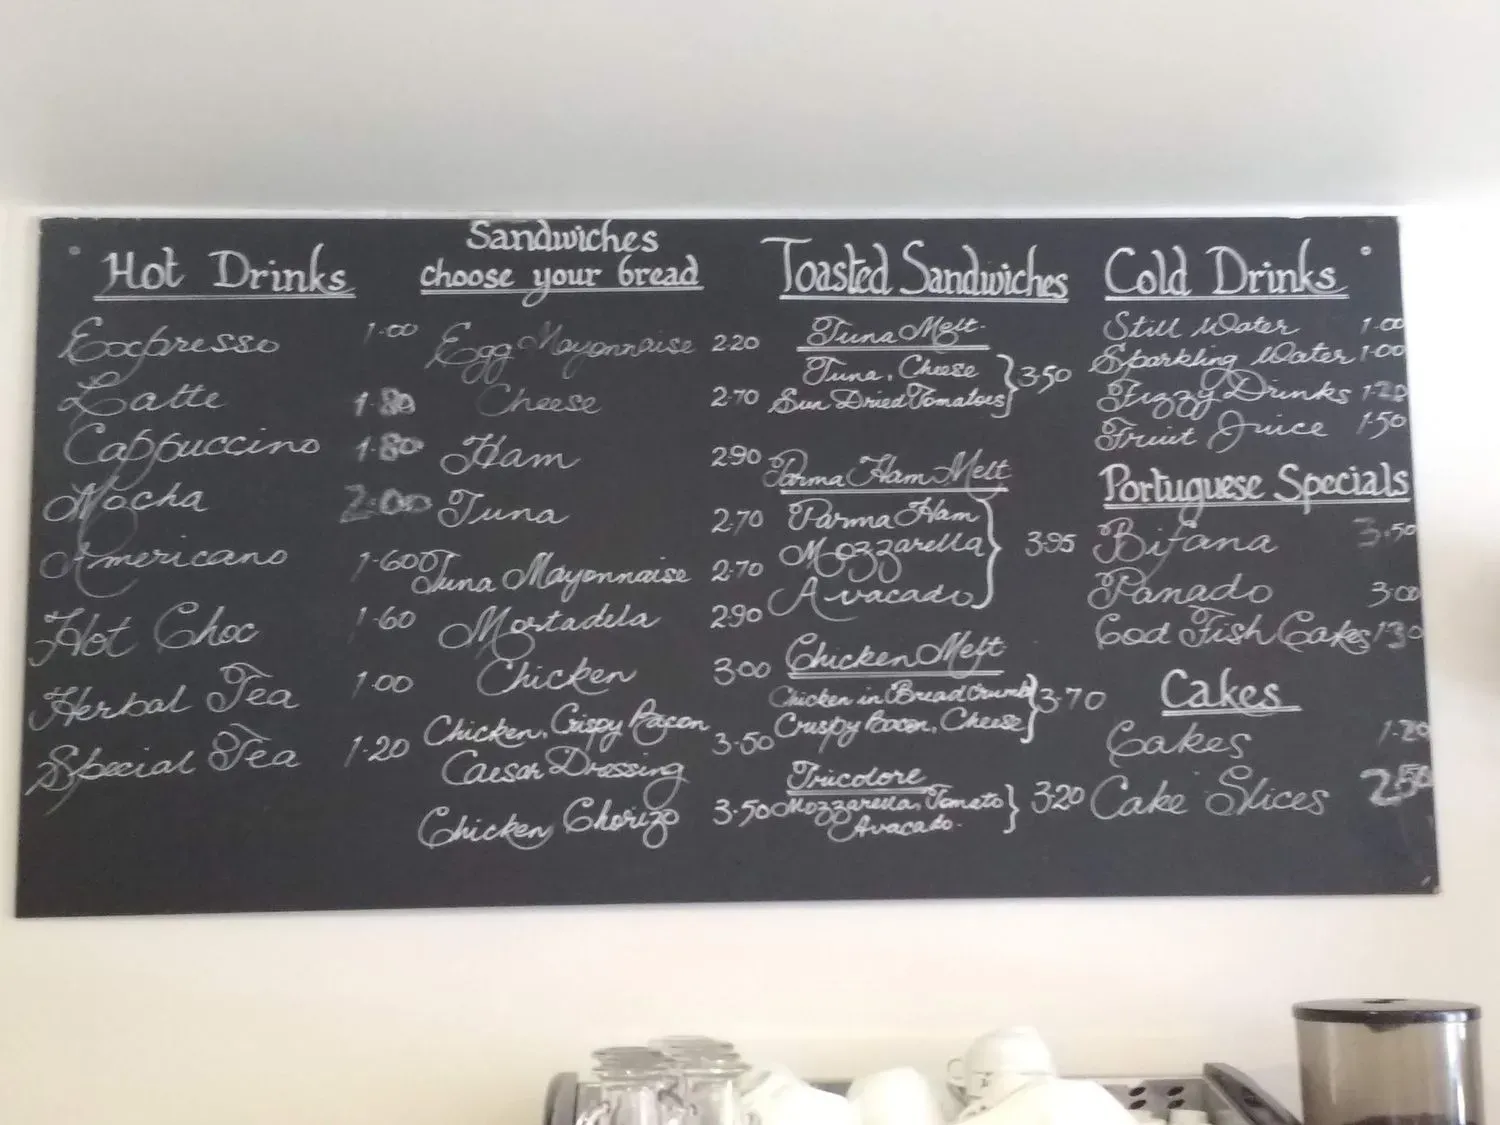 Hot Drinks
Expresso 1.00
Latte 1.80
Cappuccino 1.80
Mocha 2.00
Americano 1.60
Hot Choc 1.60
Herbal Tea 1.00
Special Tea 1.20
Sandwiches
choose your bread
Egg Mayonnaise 2.20
Cheese 2.70
Ham 2.90
Tuna 2.70
Tuna Mayonnaise 2.70
Mortadela 2.90
Chicken 3.00
Chicken, Crispy Bacon
Caesar Dressing 3.50
Chicken Chorizo 3.50
Toasted Sandwiches
Tuna Melt
Tuna, Cheese
Sun Dried Tomatoes 3.50
Parma Ham Melt
Parma Ham
Mozzarella 3.95
Avacado
Chicken Melt
Chicken in Bread Crumb 3.70
Cruspy Bacon, Cheese
Tricolore
Mozzarella, Tomato 3.20
Avacado
Cold Drinks
Still Water 1.00
Sparkling Water 1.00
Fizzy Drinks 1.20
Fruit Juice 1.50
Portuguese Specials
Bifana 3.50
Panado 3.00
Cod Fish Cakes 1.30
Cakes
Cakes 1.20
Cake Slices 2.50